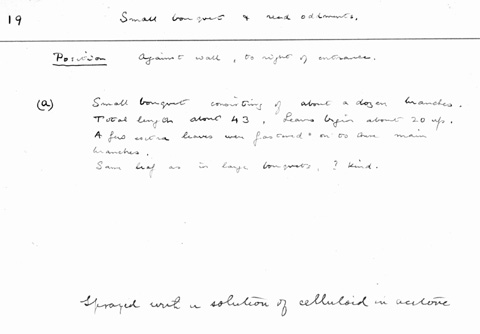 19 Small bouquet & reed oddments.
Position Against wall, to right of entrance.
(a) Small bouquet consisting of about a dozen branches.
Total length about 43. Leaves begin about 20 up.
A few extra leaves were fastened on to these main
branches.
Same leaf as in large bouquets, ? kind.
Sprayed with a solution of celluloid in acetone